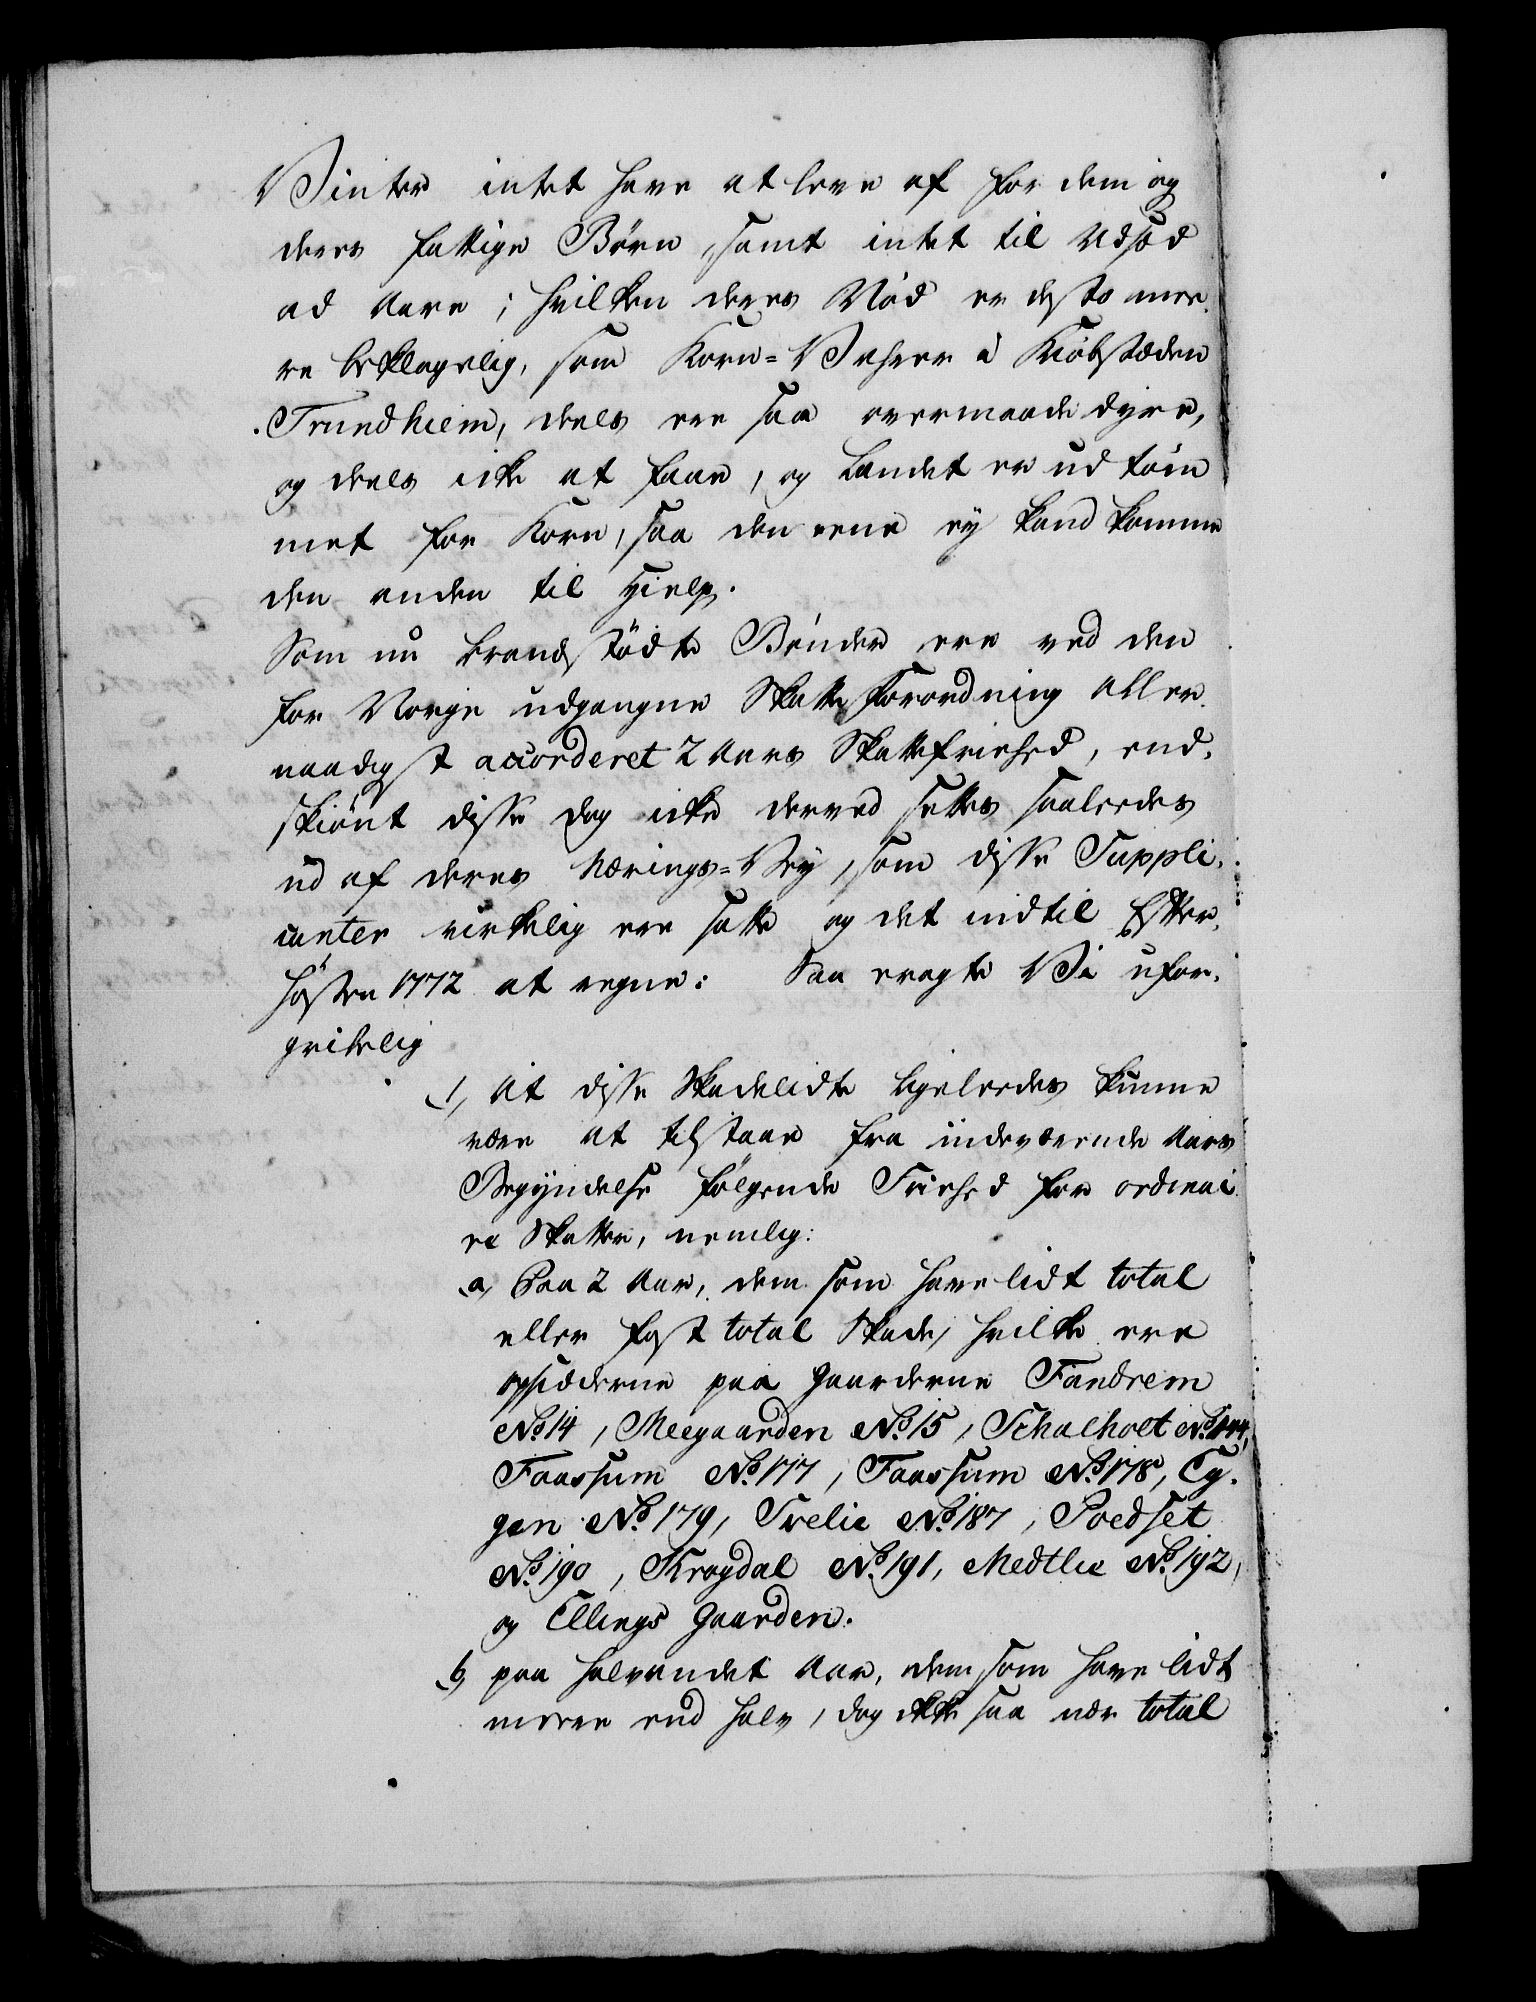 Vinter intet have at leve af for dem og
deres fattige Børn, samt intet til Udsæd
ad Aare; hvilken deres Nød er desto mee-
re beklagelig, som Korn=Vahrer i Kiøbstæden
Trundhiem, deels ere saa overmaade dyre,
og deels icke at faae, og Landet er udtøm
met for Korn, saa den eene ey kand komme
den anden til Hielp.
Som nu brandstødte Bønder ere ved den
for Norge udgangne Skatte Forordning aller-
naadigst accorderet 2 Aars Skattefriehed, end-
skiønt disse dog icke derved settes saaledes
ud af deres Nærings=Vey, som disse Suppli-
canter virkelig ere satte og det indtil Efter-
høsten 1772 at regne: Saa eragte Vi ufor-
gribelig
1, At disse Skadelidte ligeledes kunne
være at tilstaae fra indeværende Aars
Begyndelse følgende Friehed for ordinai
re Skatter, nemlig:
a, Paa 2 Aar, dem som have lidt total
eller fast total Skade, hvilke ere
opsidderne paa Gaarderne Fandrem
No. 14, Meegaarden No. 15, Schalholt No. 144,
Faassum No. 177, Faassum No. 178, Ey-
gen No. 179, Trelie No. 187, Poedset
No. 190, Krogdal No. 191, Medtlie No. 192,
og Ellings Gaarden.
b, paa halvandet Aar, dem, som have lidt
meere end halv, dog ikke saa nær total